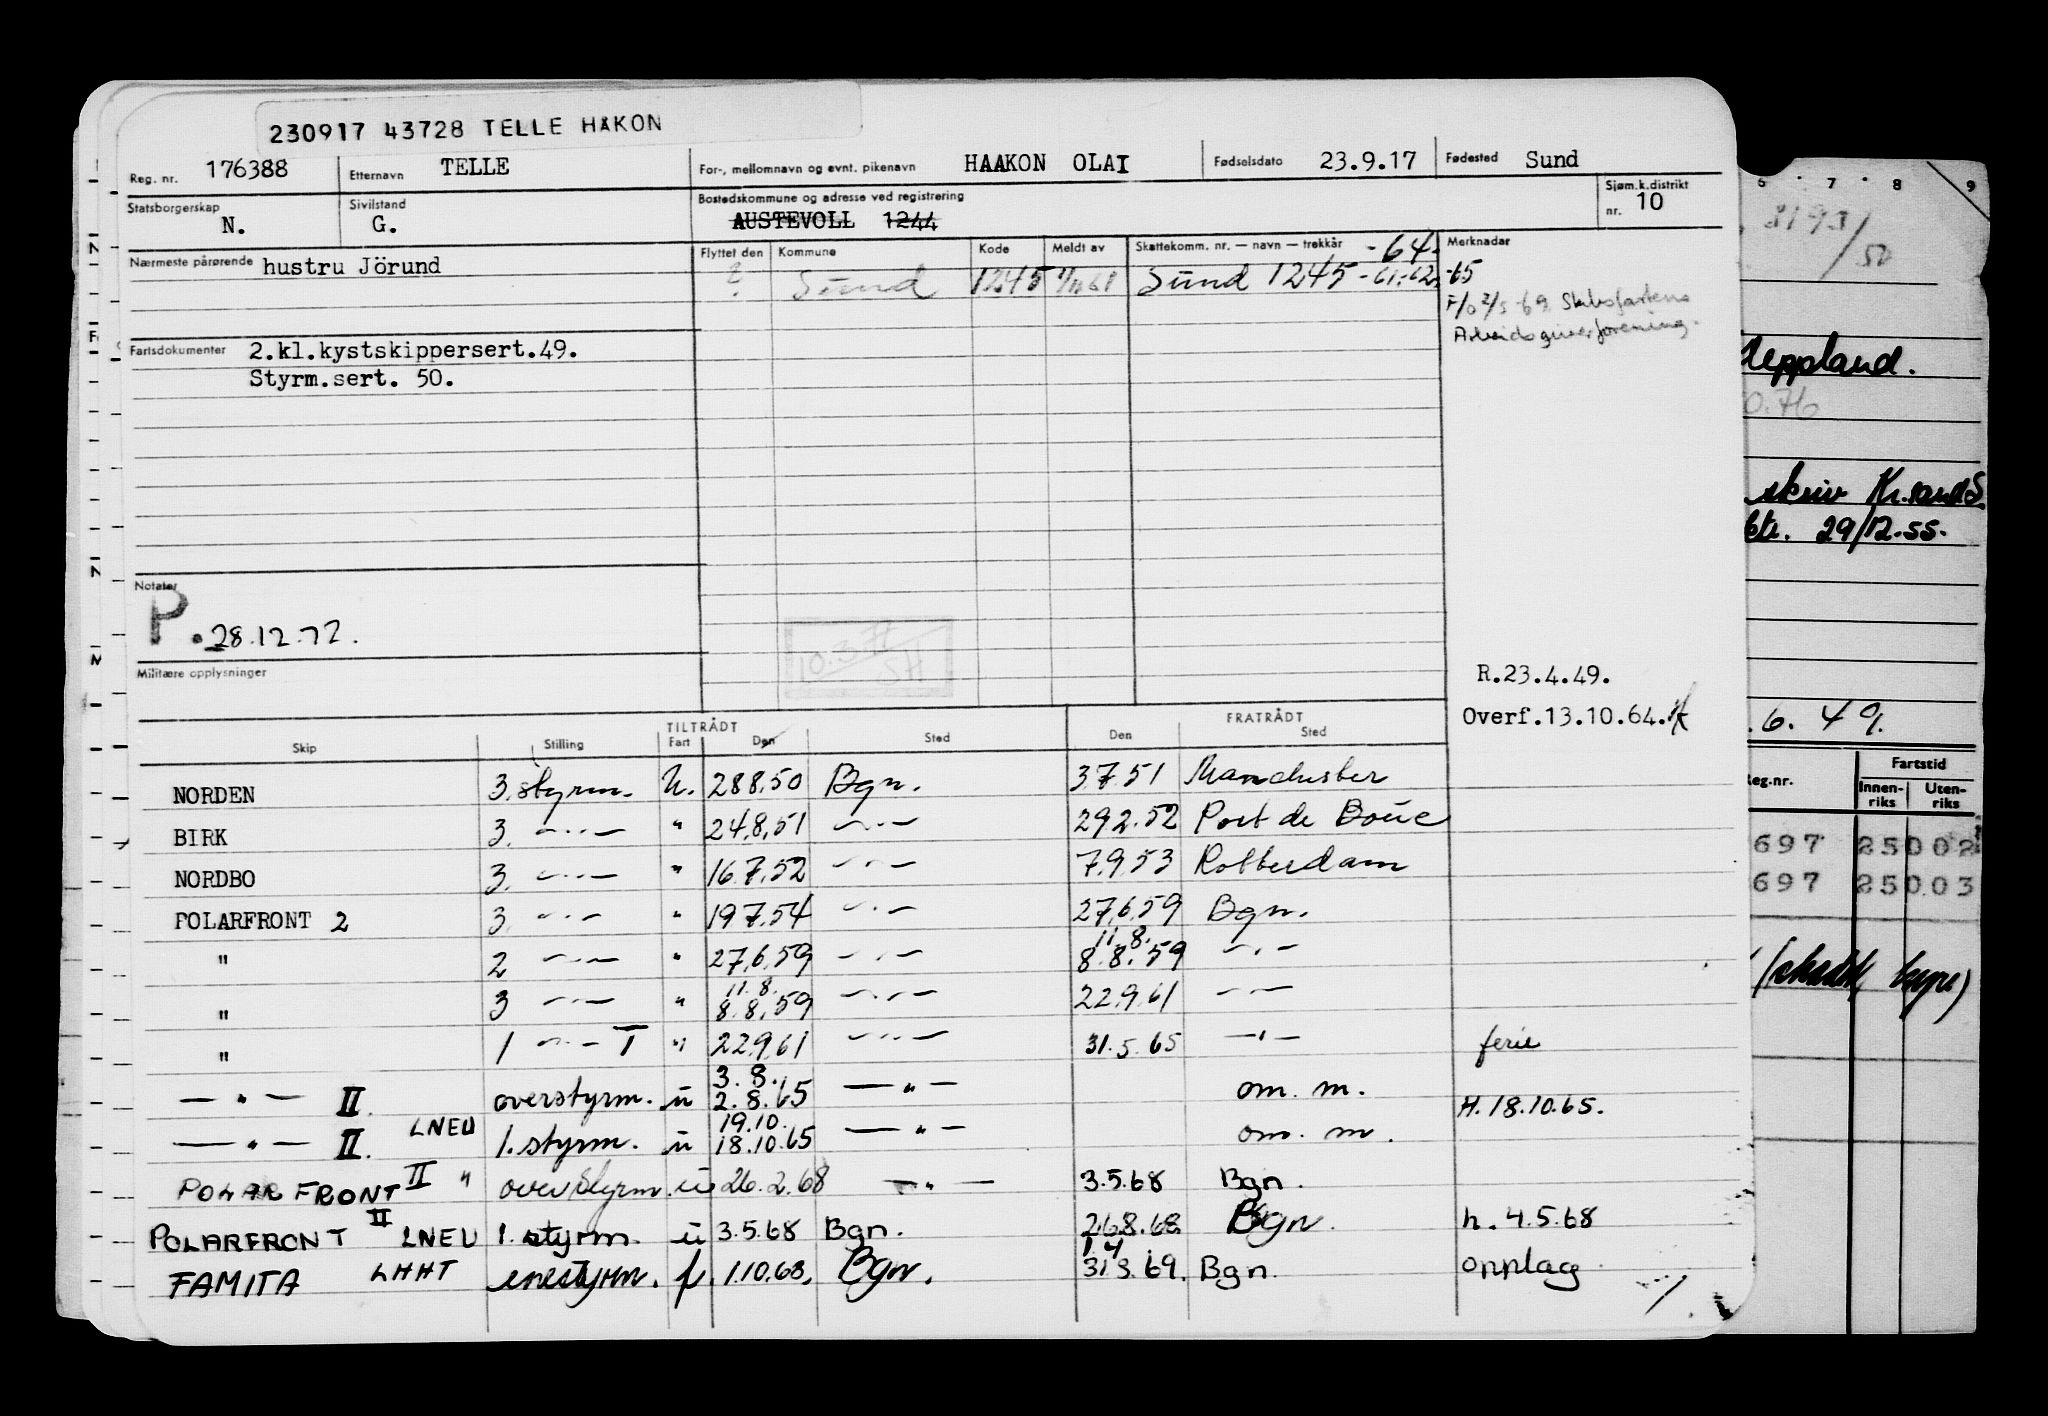 230917 43728 TELLE HAKON
Reg. nr. 176388 Etternavn TELLE For-, mellomnavn og evnt. pikenavn HAAKON OLAI Fødselsdato 23.9.17 Fødested Sund
Statsborgerskap N. Sivilstand G. Bostedskommune og adresse ved registrering AUSTEVOLL 1244 Sjøm.k.distrikt nr. 10
Nærmeste pårørende hustru Jörund Flyttet den Kommune Kode Meldt av Skattekomm. nr. — navn — trekkår -64. Merknader
? Sund 1245 Sund 1245 -61-62. -65
F/o 2/5-69 Skibsfartens
Arbeidsgiverforening.
Fartsdokumenter 2.kl.kystskippersert.49.
Styrm.sert. 50.
Notater
P. 28.12.72.
10.3.71
SH
Militære opplysninger
R.23.4.49.
Overf.13.10.64.
TILTRÅDT FRATRÅDT
Skip Stilling Fart Den Sted Den Sted
NORDEN 3. styrm. U. 28 8.50 Bgn. 3 7 51 Manchester
BIRK 3. —"— " 24.8.51 —"— 29 2.52 Port de Bouc
NORDBO 3. —"— " 16.7.52 —"— 7.9.53 Rotterdam
POLARFRONT 2 3. —"— " 19 7.54 —"— 27.6.59 Bgn.
" 2 —"— " 27.6.59 —"— 11.8. 8.8.59 —"—
" 3 —"— " 11.8. 8.8.59 —"— 22.9.61 —"—
" 1 —"— T " 22.9.61 —"— 31.5.65 —"— ferie
—"— II. overstyrm. u 3.8. 2.8.65 —"— om. m. H. 18.10.65.
—"— II. LNEU 1. styrm. u 19.10. 18.10.65 —"— om. m.
POLARFRONT II " overstyrm. u 26.2.68 —"— 3.5.68 Bgn.
POLARFRONT II LNEU 1. styrm. u 3.5.68 Bgn. 26.8.68 Bgn. h. 4.5.68
FAMITA LHHT enestyrm. f. 1.10.68. Bgn. 1.4 31.3.69. Bgn. opplag
6 7 8 9
3193/50
Heppland.
0.76
skriv Kr.sand S.
29/12-55.
.6. 49.
Reg.nr. Fartstid
Innen-riks Uten-riks
697 25002
697 25003